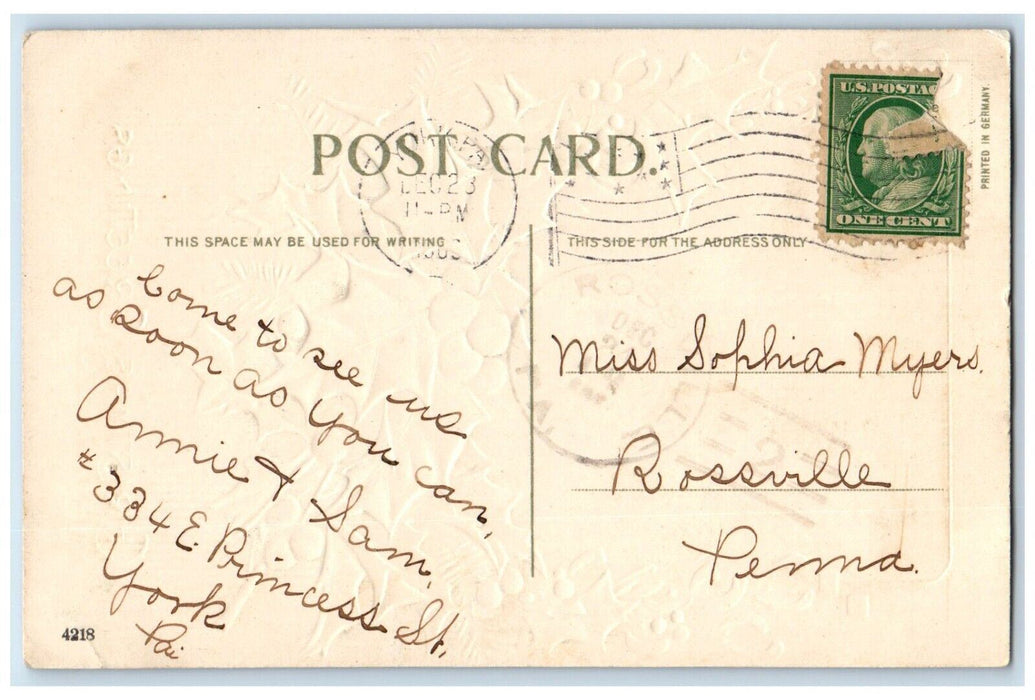 POST CARD.
U.S. POSTAG
ONE CENT
PRINTED IN GERMANY.
DEC 23
11-PM
THIS SPACE MAY BE USED FOR WRITING
THIS SIDE FOR THE ADDRESS ONLY
Come to see us
as soon as you can,
Annie & Sam,
# 334 E. Princess St.,
York
Pa.
Miss Sophia Myers.
Rossville
Penna.
DEC
4218